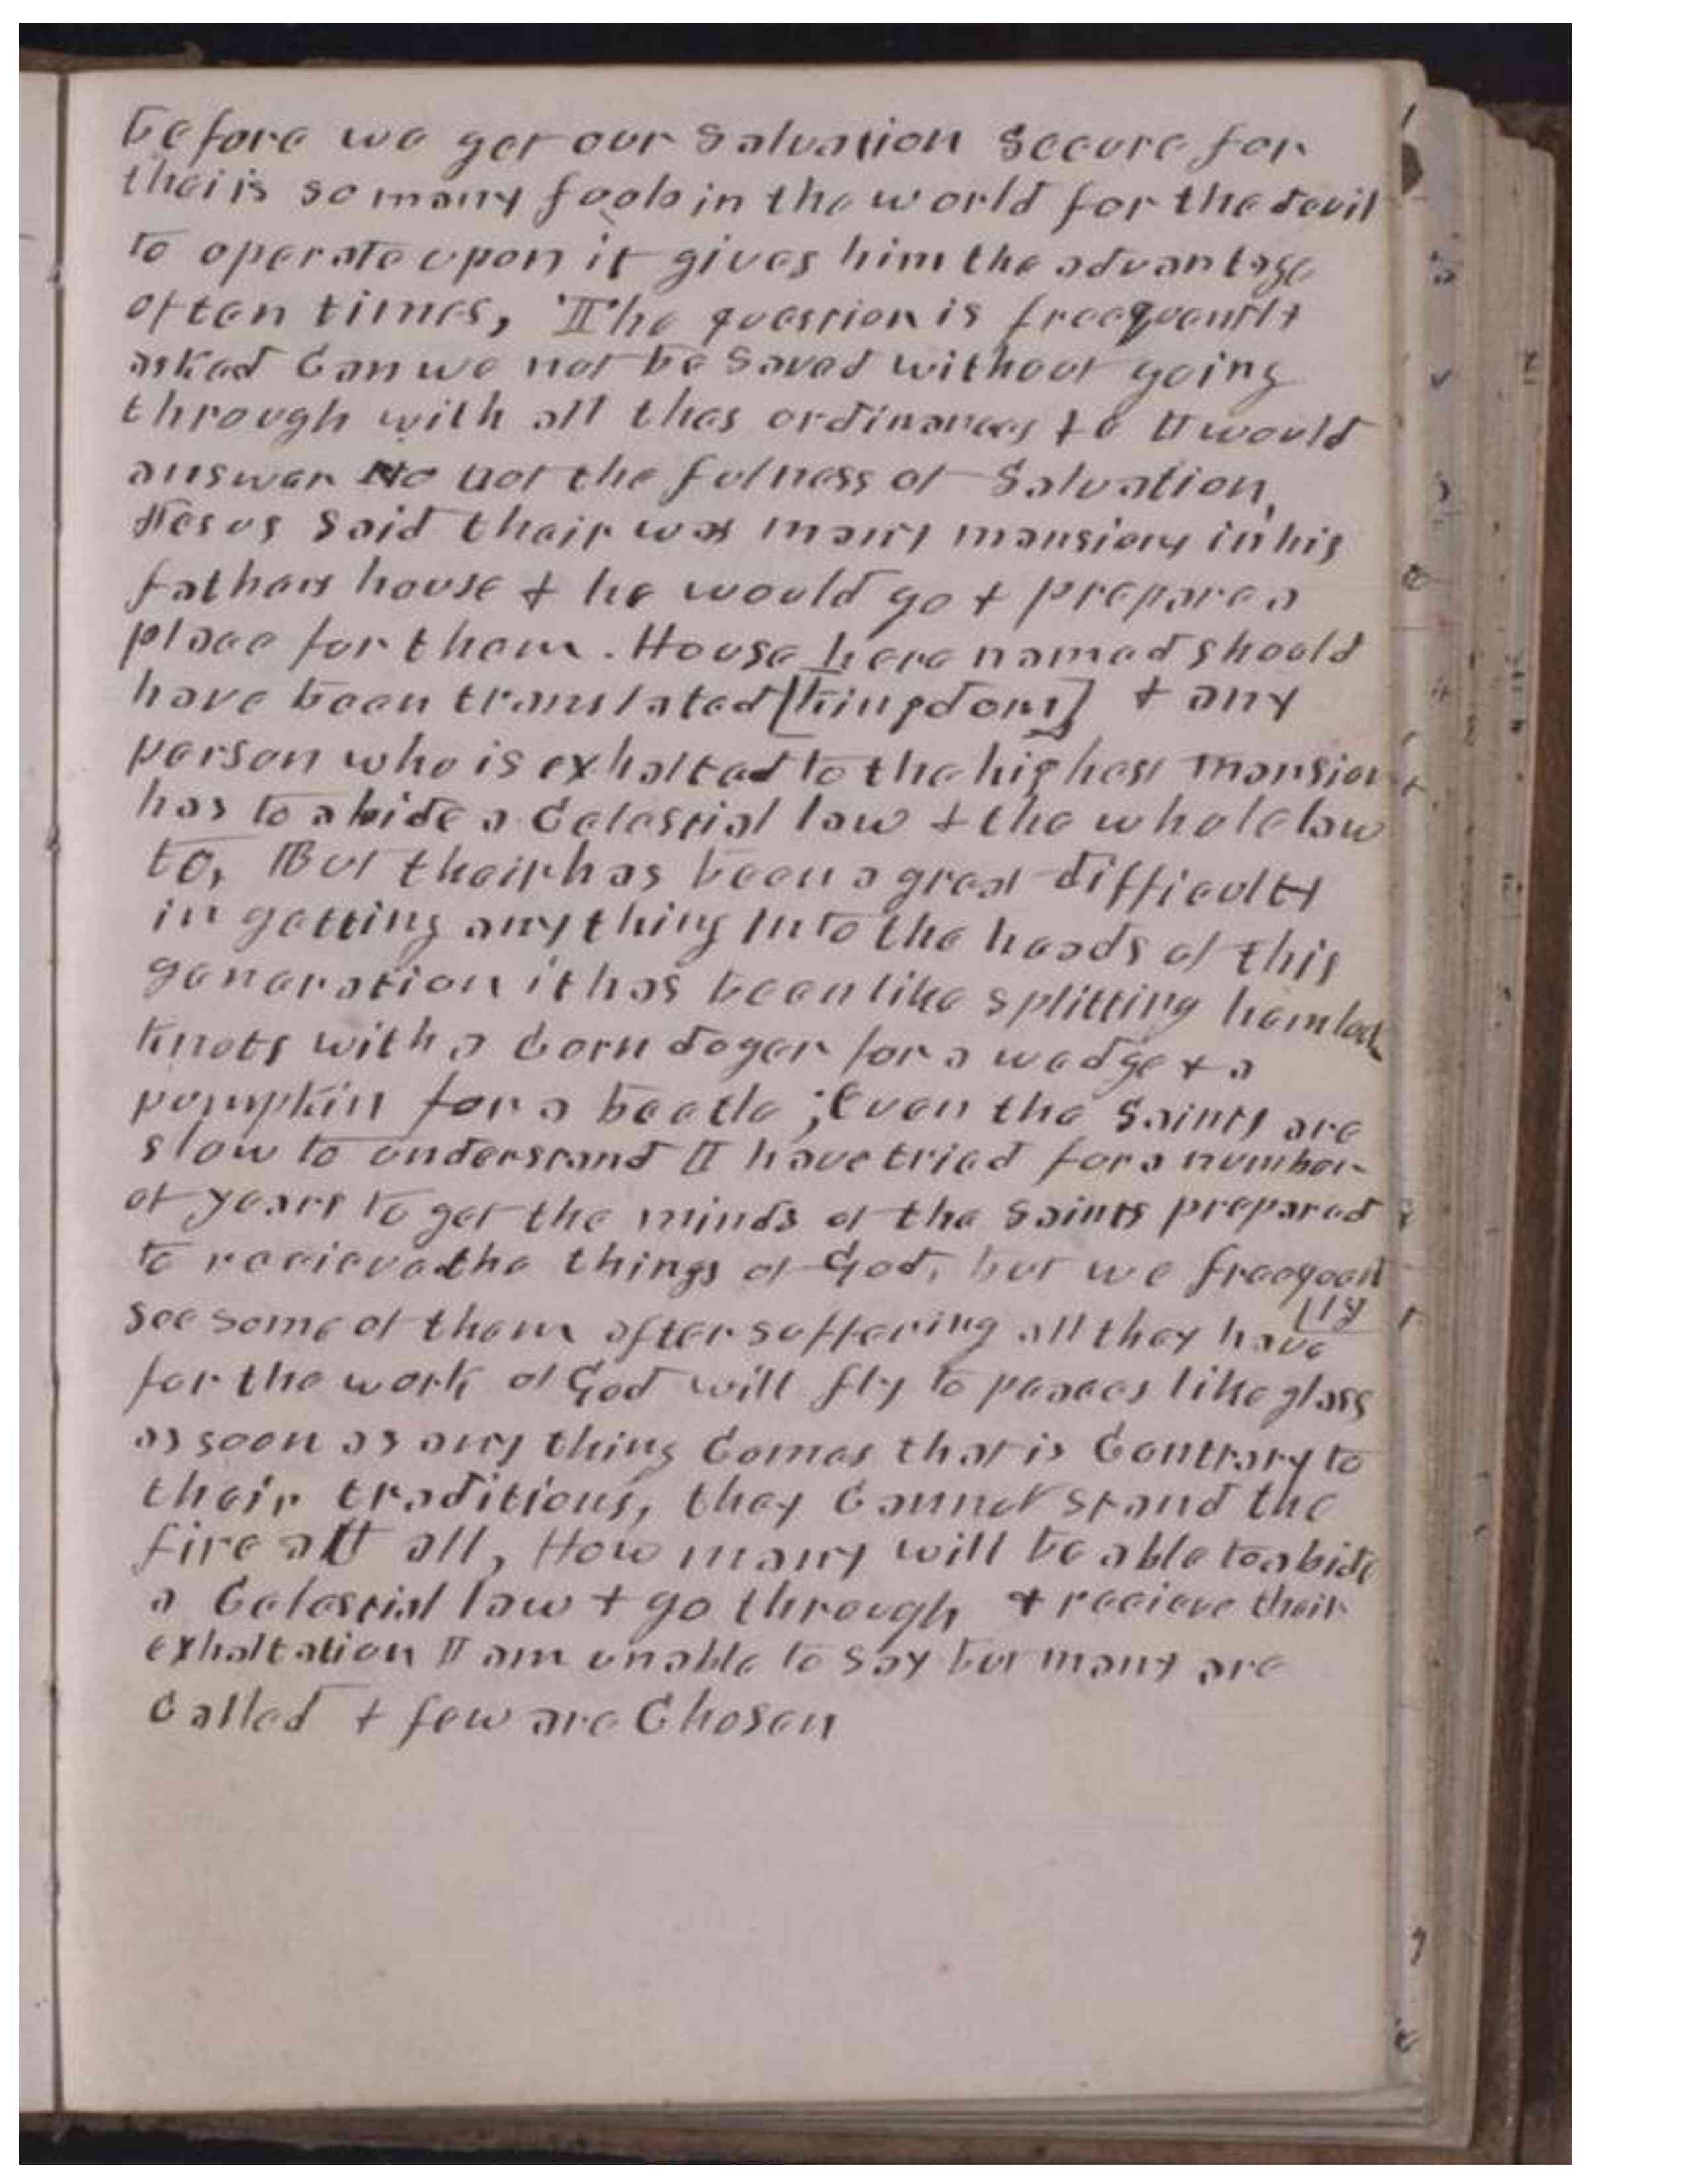 before we get our Salvation Secure for
thair is so many fools in the world for the devil
to operate upon it gives him the advantage
often times, The question is freequently
asked Can we not be Saved without going
through with all thes ordinances &c I would
answer No not the fulness of Salvation,
Jesus Said thair was many mansions in his
fathers house & he would go & prepare a
place for them. House here named should
have been translated [Kingdom] & any
person who is exhalted to the highest mansion
has to abide a Celestial law & the whole law
to, But thair has been a great difficulty
in getting anything into the heads of this
generation it has been like splitting hemlock
Knots with a Corn doger for a wedge & a
pumpkin for a beetle; Even the Saints are
slow to understand I have tried for a number
of years to get the minds of the Saints prepared
to recieve the things of God, but we freequent
[ly
see some of them after suffering all they have
for the work of God will fly to peaces like glass
as soon as any thing Comes that is Contrary to
their traditions, they Cannot stand the
fire att all, How many will be able to abide
a Celestial law & go through & recieve their
exhaltation I am unable to say but many are
Called & few are Chosen